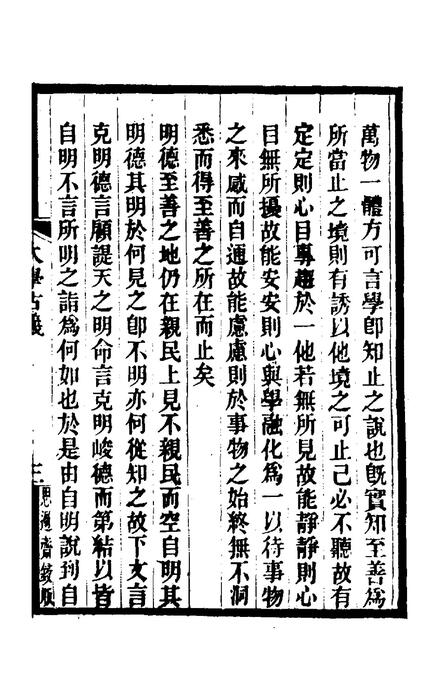 萬物一體方可言學卽知止之說也旣實知至善爲
所當止之境則有誘以他境之可止己必不聽故有
定定則心目專趨於一他若無所見故能靜靜則心
目無所擾故能安安則心與學融化爲一以待事物
之來感而自通故能慮慮則於事物之始終無不洞
悉而得至善之所在而止矣
明德至善之地仍在親民上見不親民而空自明其
明德其明於何見之卽不明亦何從知之故下文言
克明德言顧諟天之明命言克明峻德而第結以皆
自明不言所明之詣爲何如也於是由自明說到自
大學古義
三
思過齋叢